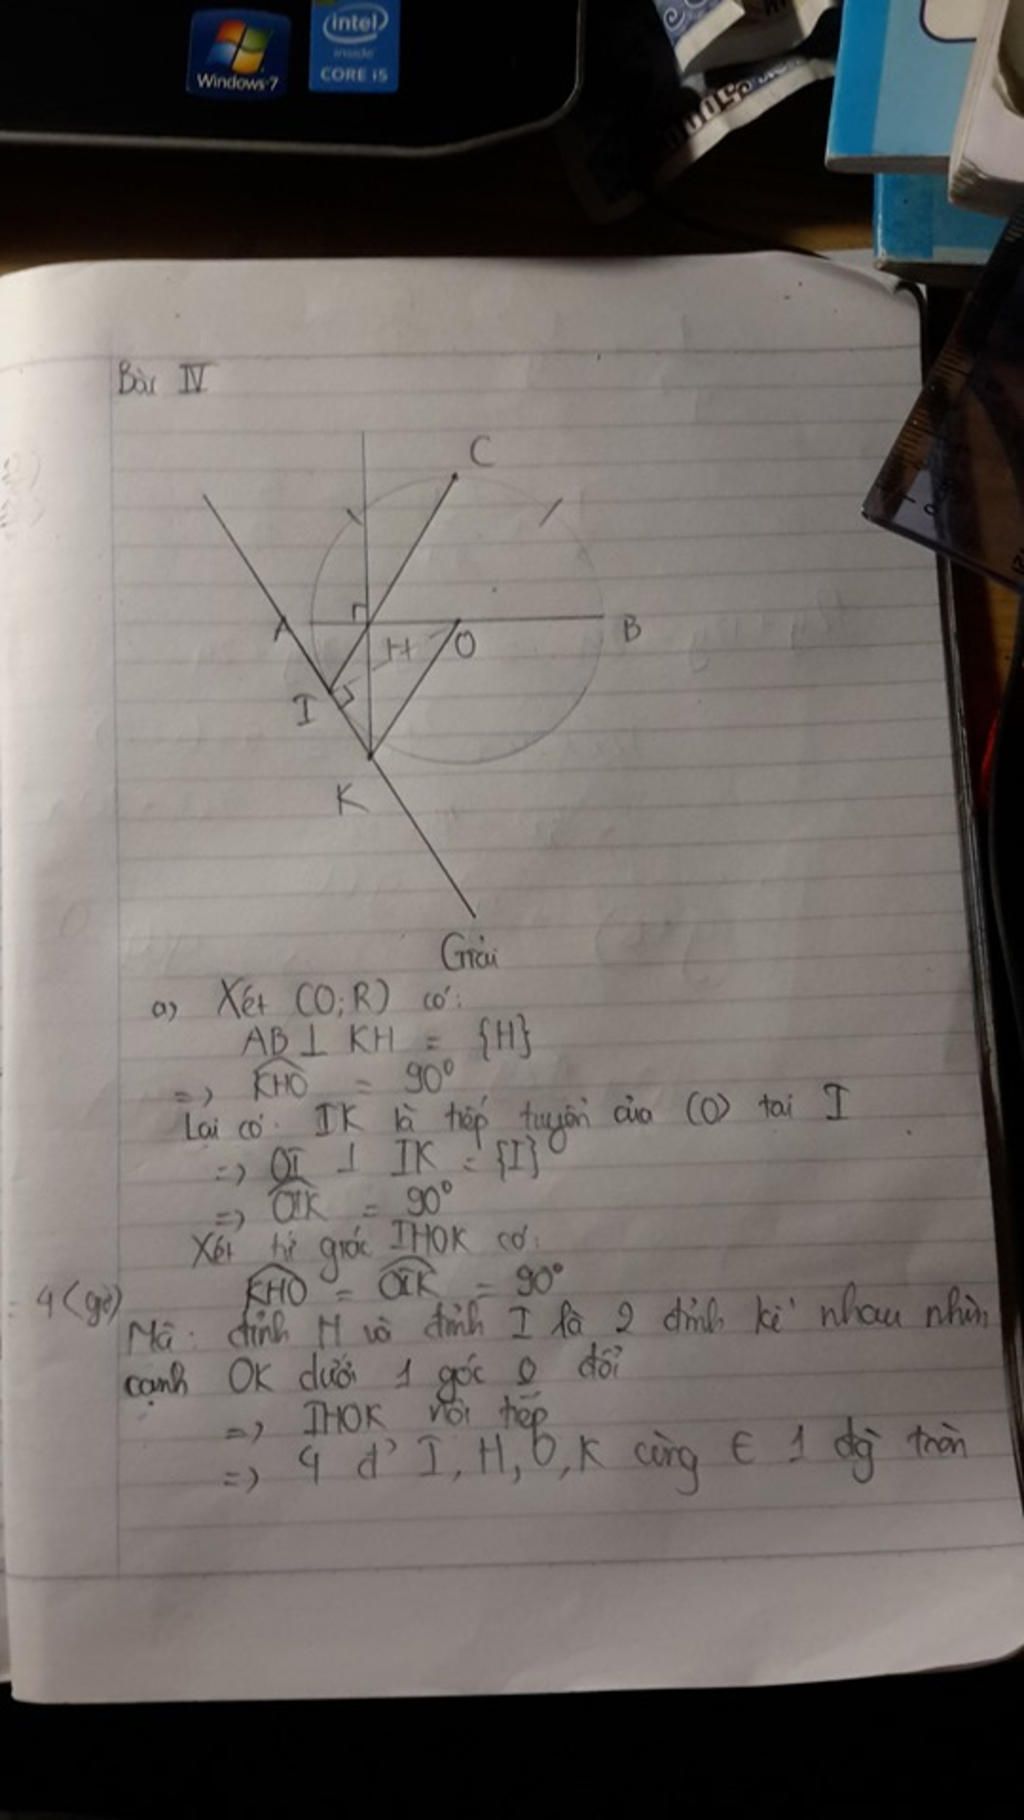 Windows 7
intel
inside
CORE i5
Bài IV
C
A
H
O
B
I
K
Giải
a) Xét (O;R) có:
AB ⊥ KH = {H}
=> KHO = 90°
Lại có: IK là tiếp tuyến của (O) tại I
=> OI ⊥ IK = {I}
=> OIK = 90°
Xét tứ giác IHOK có:
KHO = OIK = 90°
= 4 (giờ)
Mà: đỉnh H và đỉnh I là 2 đỉnh kề nhau nhìn
cạnh OK dưới 1 góc 0 đổi
=> IHOK nội tiếp
=> 4 đ' I, H, O, K cùng ∈ 1 đg tròn